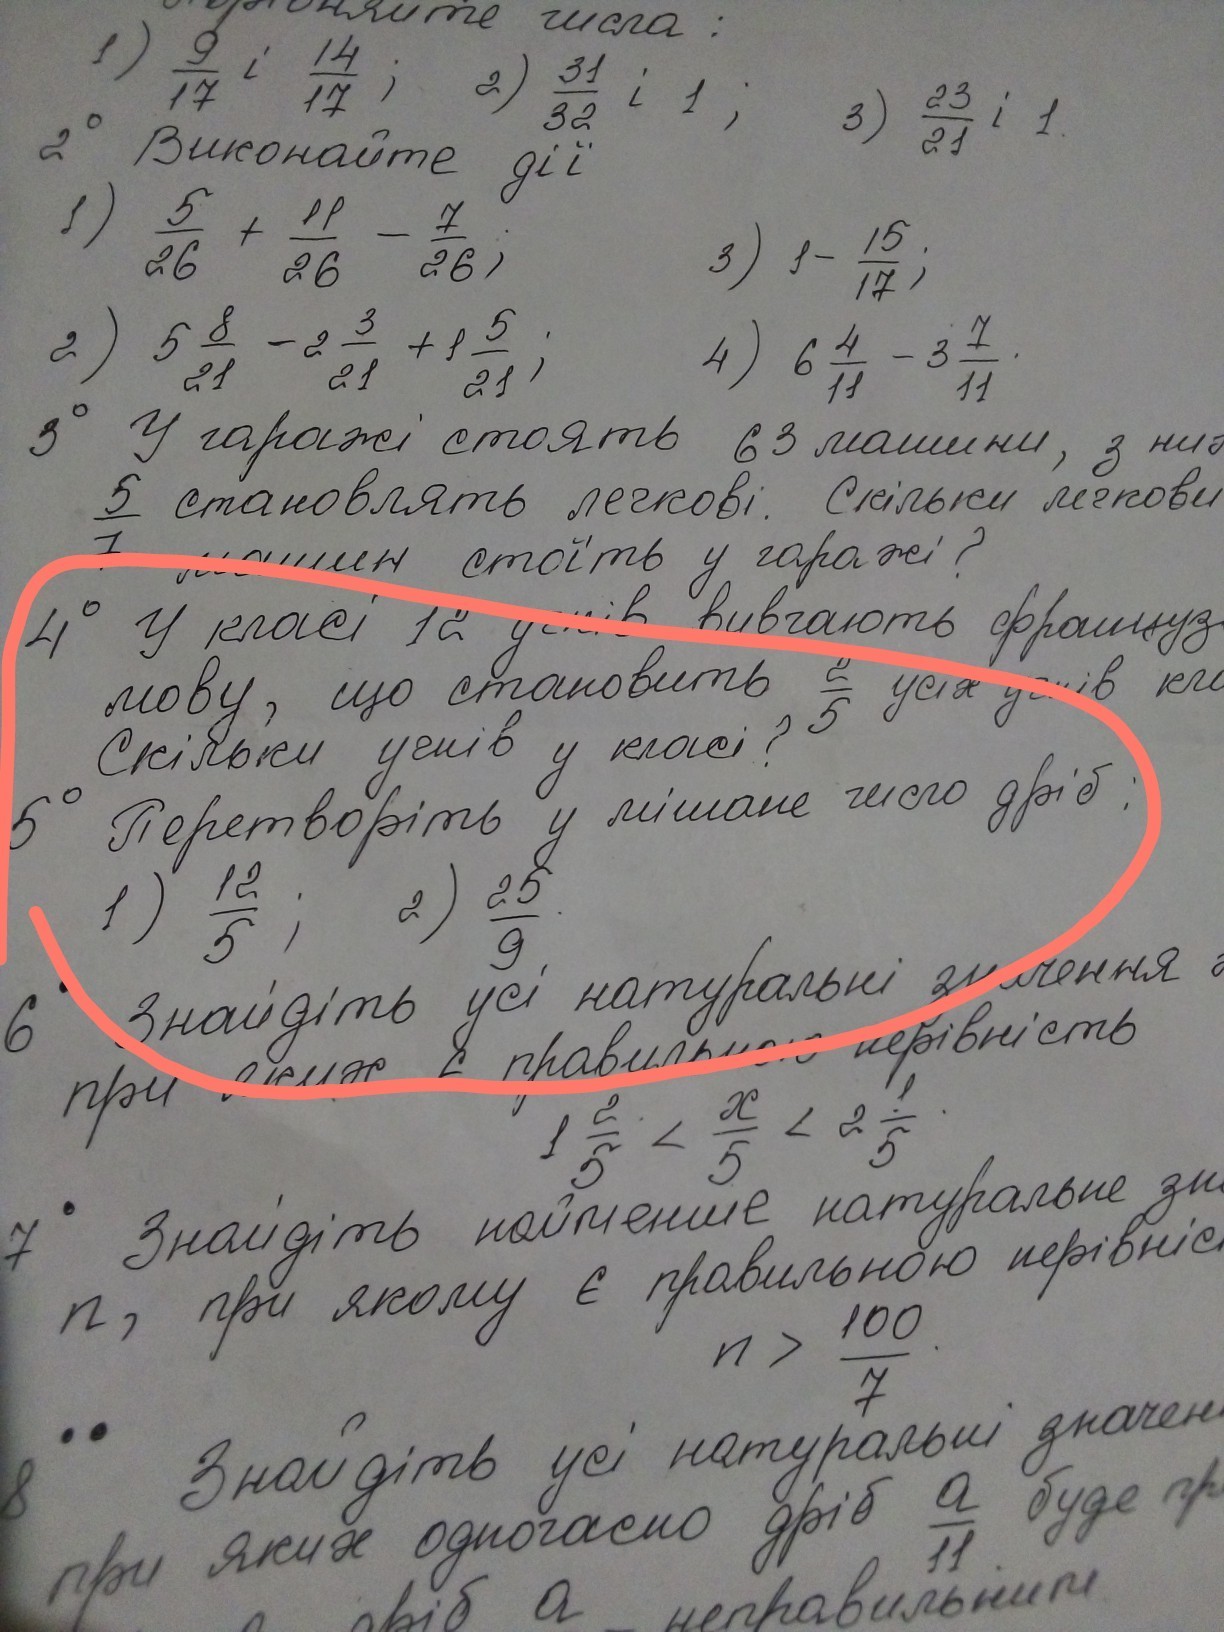 числа :
1) 9/17 і 14/17 ; 2) 31/32 і 1 ; 3) 23/21 і 1.
2° Виконайте дії
1) 5/26 + 11/26 - 7/26 ; 3) 1 - 15/17 ;
2) 5 8/21 - 2 3/21 + 1 5/21 ; 4) 6 4/11 - 3 7/11 .
3° У гаражі стоять 63 машини, з
5/7 становлять легкові. Скільки
машин стоїть у гаражі?
4° У класі 12 учнів вивчають
мову, що становить 2/5 усіх учнів
Скільки учнів у класі?
5° Перетворіть у мішане число дріб :
1) 12/5 ; 2) 25/9 .
6• Знайдіть усі натуральні значення
при яких є правильною нерівність
1 2/5 < x/5 < 2 1/5 .
7• Знайдіть найменше натуральне
n, при якому є правильною
n > 100/7 .
8•• Знайдіть усі натуральні
при яких одночасно дріб a/11 буде
дріб a неправильним